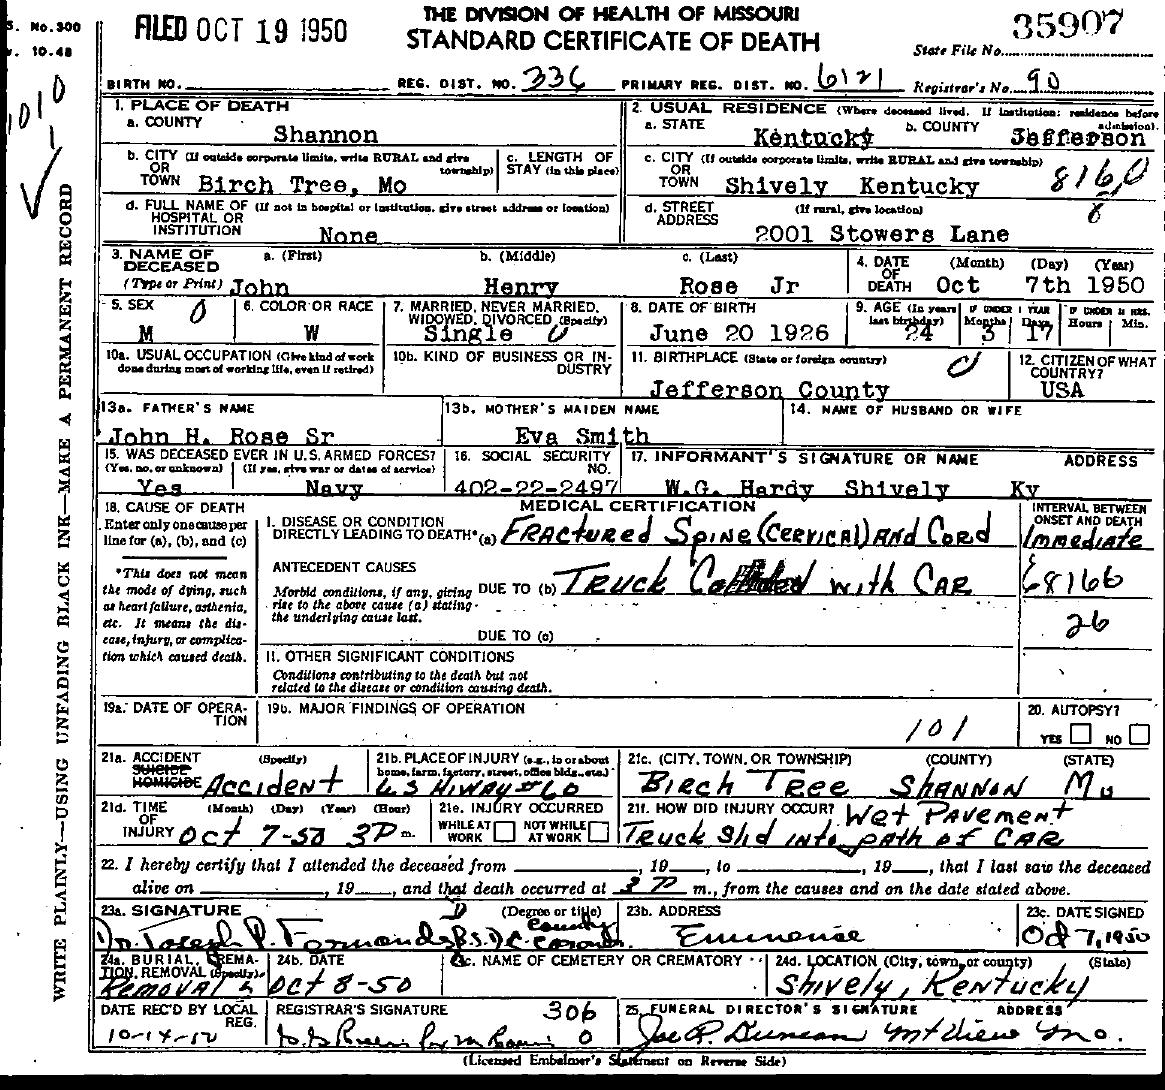 THE DIVISION OF HEALTH OF MISSOURI
STANDARD CERTIFICATE OF DEATH
S. No. 300
10.48
FILED OCT 19 1950
State File No. 35907
BIRTH NO. REG. DIST. NO. 336 PRIMARY REG. DIST. NO. 6121 Registrar's No. 90
1010
WRITE PLAINLY—USING UNFADING BLACK INK—MAKE A PERMANENT RECORD
1. PLACE OF DEATH
a. COUNTY Shannon
b. CITY (If outside corporate limits, write RURAL and give township) OR TOWN Birch Tree, Mo
c. LENGTH OF STAY (in this place)
d. FULL NAME OF (If not in hospital or institution, give street address or location) HOSPITAL OR INSTITUTION None
2. USUAL RESIDENCE (Where deceased lived. If institution: residence before admission).
a. STATE Kentucky b. COUNTY Jefferson
c. CITY (If outside corporate limits, write RURAL and give township) OR TOWN Shively Kentucky 8160
6
d. STREET ADDRESS (If rural, give location) 2001 Stowers Lane
3. NAME OF DECEASED (Type or Print) a. (First) John b. (Middle) Henry c. (Last) Rose Jr
4. DATE OF DEATH (Month) (Day) (Year) Oct 7th 1950
5. SEX M 0
6. COLOR OR RACE W
7. MARRIED, NEVER MARRIED, WIDOWED, DIVORCED (Specify) Single
8. DATE OF BIRTH June 20 1926
9. AGE (In years last birthday) 24 IF UNDER 1 YEAR Months 3 Days 17 IF UNDER 24 HRS. Hours Min.
10a. USUAL OCCUPATION (Give kind of work done during most of working life, even if retired)
10b. KIND OF BUSINESS OR INDUSTRY
11. BIRTHPLACE (State or foreign country) Jefferson County
12. CITIZEN OF WHAT COUNTRY? USA
13a. FATHER'S NAME John H. Rose Sr
13b. MOTHER'S MAIDEN NAME Eva Smith
14. NAME OF HUSBAND OR WIFE
15. WAS DECEASED EVER IN U.S. ARMED FORCES? (Yes, no, or unknown) Yes (If yes, give war or dates of service) Navy
16. SOCIAL SECURITY NO. 402-22-2497
17. INFORMANT'S SIGNATURE OR NAME ADDRESS
W.G. Hardy Shively Ky
18. CAUSE OF DEATH
Enter only one cause per line for (a), (b), and (c)
*This does not mean the mode of dying, such as heart failure, asthenia, etc. It means the disease, injury, or complication which caused death.
MEDICAL CERTIFICATION
INTERVAL BETWEEN ONSET AND DEATH
I. DISEASE OR CONDITION DIRECTLY LEADING TO DEATH*(a) Fractured Spine (Cervical) and Cord Immediate
ANTECEDENT CAUSES
Morbid conditions, if any, giving rise to the above cause (a) stating the underlying cause last.
DUE TO (b) Truck Collided with Car
E8166
26
DUE TO (c)
II. OTHER SIGNIFICANT CONDITIONS
Conditions contributing to the death but not related to the disease or condition causing death.
19a. DATE OF OPERATION
19b. MAJOR FINDINGS OF OPERATION
101
20. AUTOPSY? YES NO
21a. ACCIDENT SUICIDE HOMICIDE (Specify) Accident
21b. PLACE OF INJURY (e.g., in or about home, farm, factory, street, office bldg., etc.) US Hiway #60
21c. (CITY, TOWN, OR TOWNSHIP) (COUNTY) (STATE)
Birch Tree Shannon Mo
21d. TIME OF INJURY (Month) (Day) (Year) (Hour) Oct 7-50 3P m.
21e. INJURY OCCURRED WHILE AT WORK NOT WHILE AT WORK
21f. HOW DID INJURY OCCUR? Wet Pavement
Truck Slid into path of Car
22. I hereby certify that I attended the deceased from , 19 , to , 19 , that I last saw the deceased
alive on , 19 , and that death occurred at 3 P m., from the causes and on the date stated above.
23a. SIGNATURE (Degree or title)
Dr. Joseph P. B.S. D.C. County Coroner
23b. ADDRESS Eminence
23c. DATE SIGNED Oct 7, 1950
24a. BURIAL, CREMATION, REMOVAL (Specify) Removal
24b. DATE Oct 8-50
24c. NAME OF CEMETERY OR CREMATORY
24d. LOCATION (City, town, or county) (State)
Shively, Kentucky
DATE REC'D BY LOCAL REG. 10-14-50
REGISTRAR'S SIGNATURE 306
0
25. FUNERAL DIRECTOR'S SIGNATURE ADDRESS
Joe R. Duncan Mt View Mo.
(Licensed Embalmer's Statement on Reverse Side)